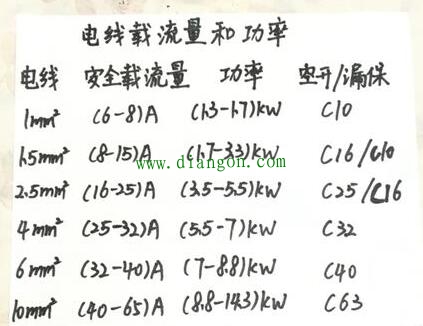 电线载流量和功率
电线 安全载流量 功率 空开/漏保
1mm² (6-8)A (1.3-1.7)kW C10
1.5mm² (8-15)A (1.7-3.3)kW C16/C10
www.diangon.com
2.5mm² (16-25)A (3.5-5.5)kW C25/C16
4mm² (25-32)A (5.5-7)kW C32
6mm² (32-40)A (7-8.8)kW C40
10mm² (40-65)A (8.8-14.3)kW C63